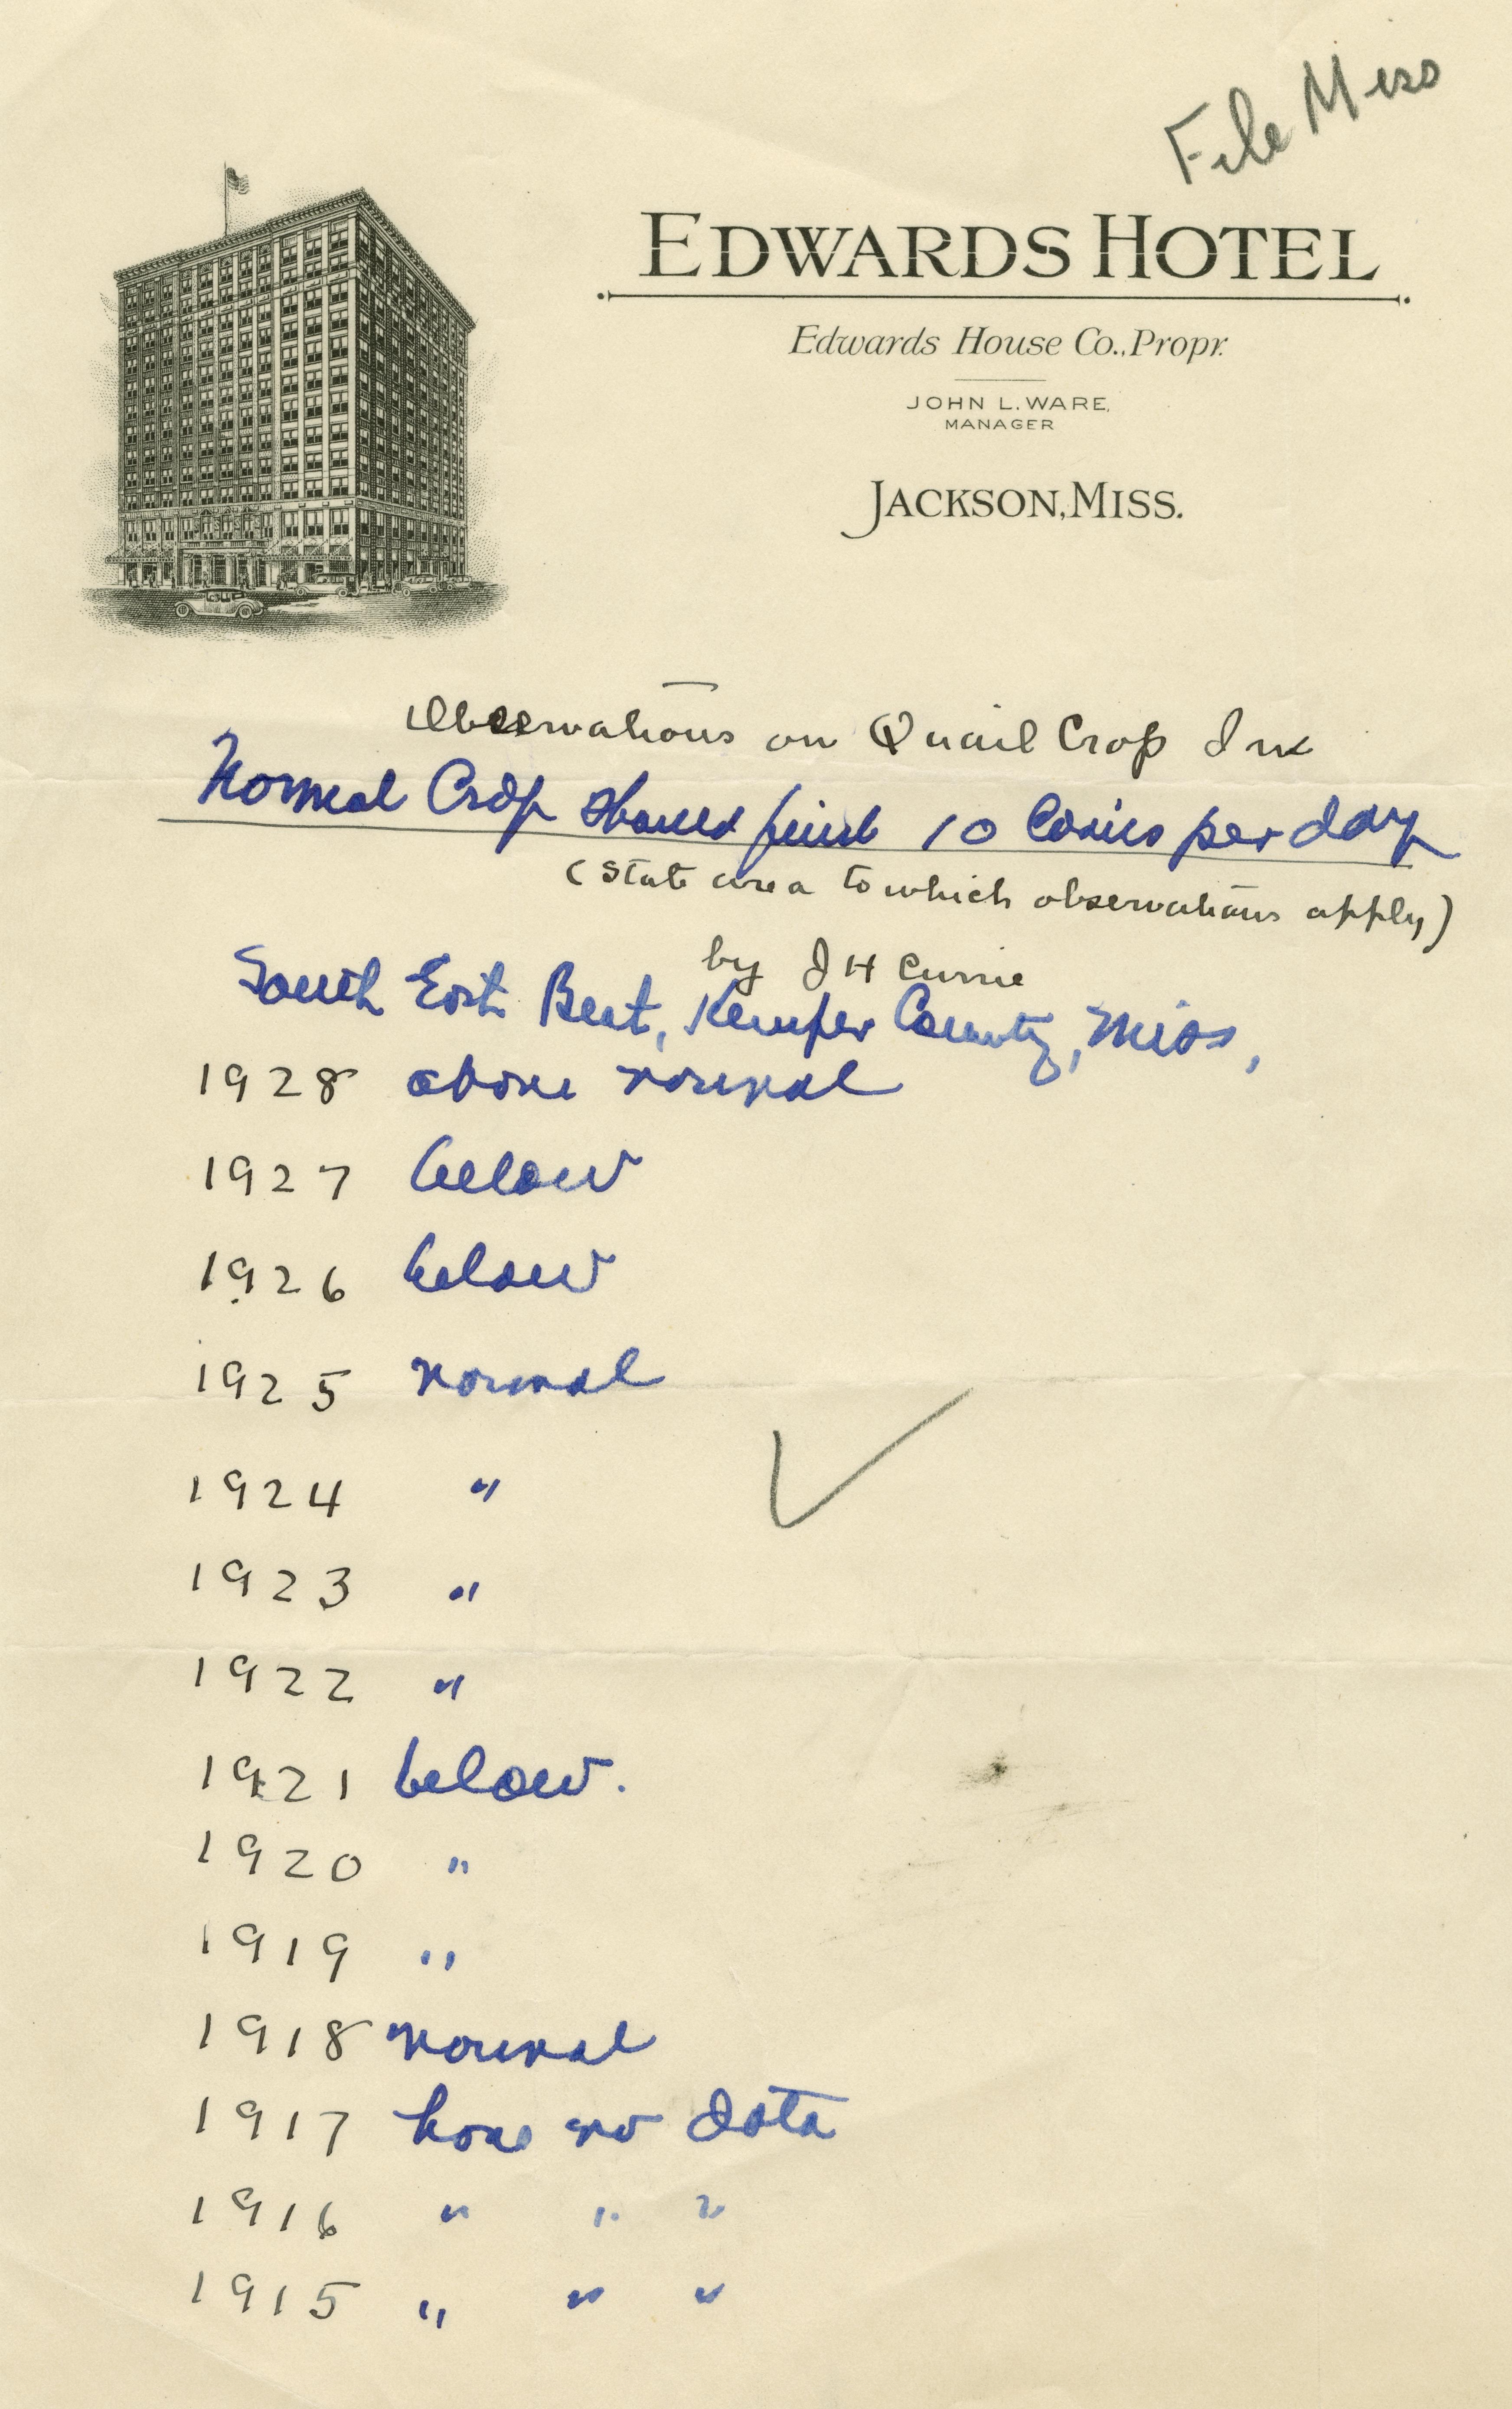 File Miss
EDWARDS HOTEL
Edwards House Co., Propr.
JOHN L. WARE,
MANAGER
JACKSON, MISS.
Observations on Quail Crop in
Normal Crop should find 10 Covies per day
(State area to which observations apply)
by J H Currie
South East Beat, Kemper County, Miss,
1928 above normal
1927 below
1926 below
1925 normal
1924 "
1923 "
1922 "
1921 below.
1920 "
1919 "
1918 normal
1917 have no data
1916 " " "
1915 " " "